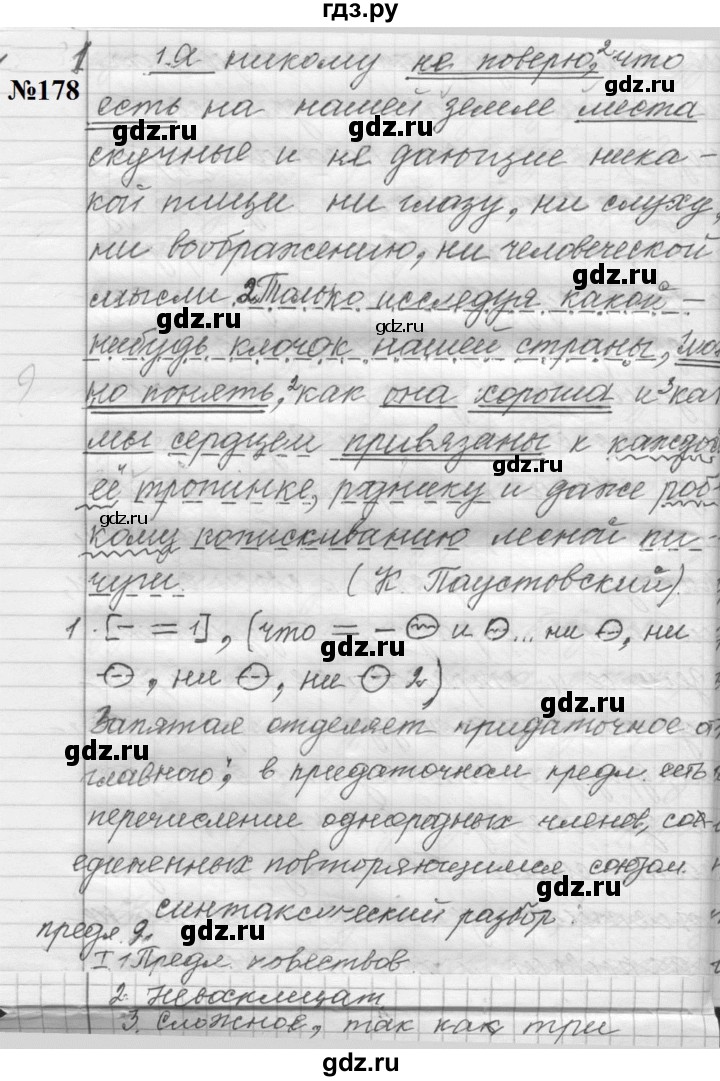 гдз.ру
1 1.Я никому не поверю,² что
№178
есть на нашей земле места
скучные и не дающие ника-
кой пищи ни глазу, ни слуху,
ни воображению, ни человеческой
мысли. 2.Только исследуя какой-
нибудь клочок нашей страны,
но понять,² как она хороша и ³ка
мы сердцем привязаны к каждой
её тропинке, роднику и даже роб-
кому попискиванию лесной пи-
чуги. (К. Паустовский).
1. [- = 1], (что = - и ... ни -, ни
-, ни -, ни - 2)
Запятая отделяет придаточное от
главного; в придаточном предл. есть
перечисление однородных членов, со
единенных повторяющимся союзом
синтаксический разбор:
предл. 2.
I 1 Предл. повествов.
2. Невосклицат
3. Сложное, так как три
gdz.ru
gdz.ru
gdz.ru
gdz.ru
gdz.ru
gdz.ru
gdz.ru
gdz.ru
gdz.ru
gdz.ru
gdz.ru
gdz.ru
gdz.ru
gdz.ru